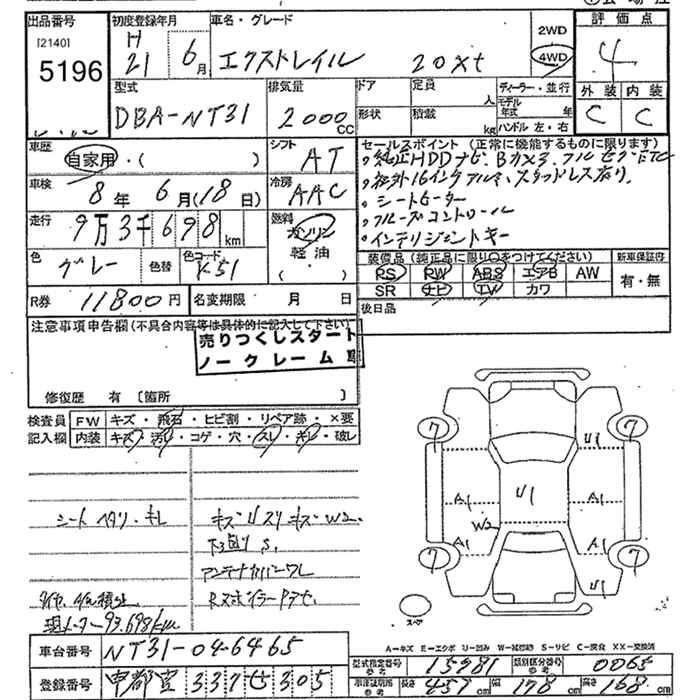 出品番号
[2140]
5196
初度登録年月
H
21 6月
車名・グレード
エクストレイル 20xt
2WD
4WD
評価点
4
外装 内装
C C
型式
DBA-NT31
排気量
2000CC
ドア
形状
定員
人
積載
kg
ディーラー・並行
モデル年式 年
ハンドル 左・右
車歴
自家用・( )
シフト
AT
車検
8年6月(18日)
冷房
AAC
走行
9万3千698km
燃料
ガソリン
軽油
( )
色
グレー
色替
色コード
K51
R券 11800円
名変期限 月 日
セールスポイント (正常に機能するものに限ります)
・純正HDDナビ、Bカメラ、フルセグ、ETC
・社外16インチアルミ、スタッドレス有り.
・シートヒーター
・クルーズコントロール
・インテリジェントキー
装備品 (純正品に限り○をつけてください)
PS PW ABS エアB AW
SR ナビ TV カワ
新車保証書
有・無
後日品
注意事項申告欄(不具合内容等は具体的に記入して下さい)
売りつくしスタート
ノークレーム
修復歴 有 [箇所 ]
検査員記入欄
FW キズ・飛石・ヒビ割・リペア跡・×要
内装 キズ・汚れ・コゲ・穴・スレ・キレ・破レ
シート ヘタリ・キレ
キズ U スリキズ W2.
下廻り S.
アンテナカバーワレ
現メーター93,698km
7 7 7 7
U1 U1 U1
A1 A1 A1 A1
W2
スペア
A=キズ E=エクボ U=凹み W=補修跡 S=サビ C=腐食 XX=交換済
車台番号 NT31-046465
登録番号 337 305
型式指定番号 参考 15981
類別区分番号 参考 0065
長さ 457cm 幅 178cm 高さ 168cm